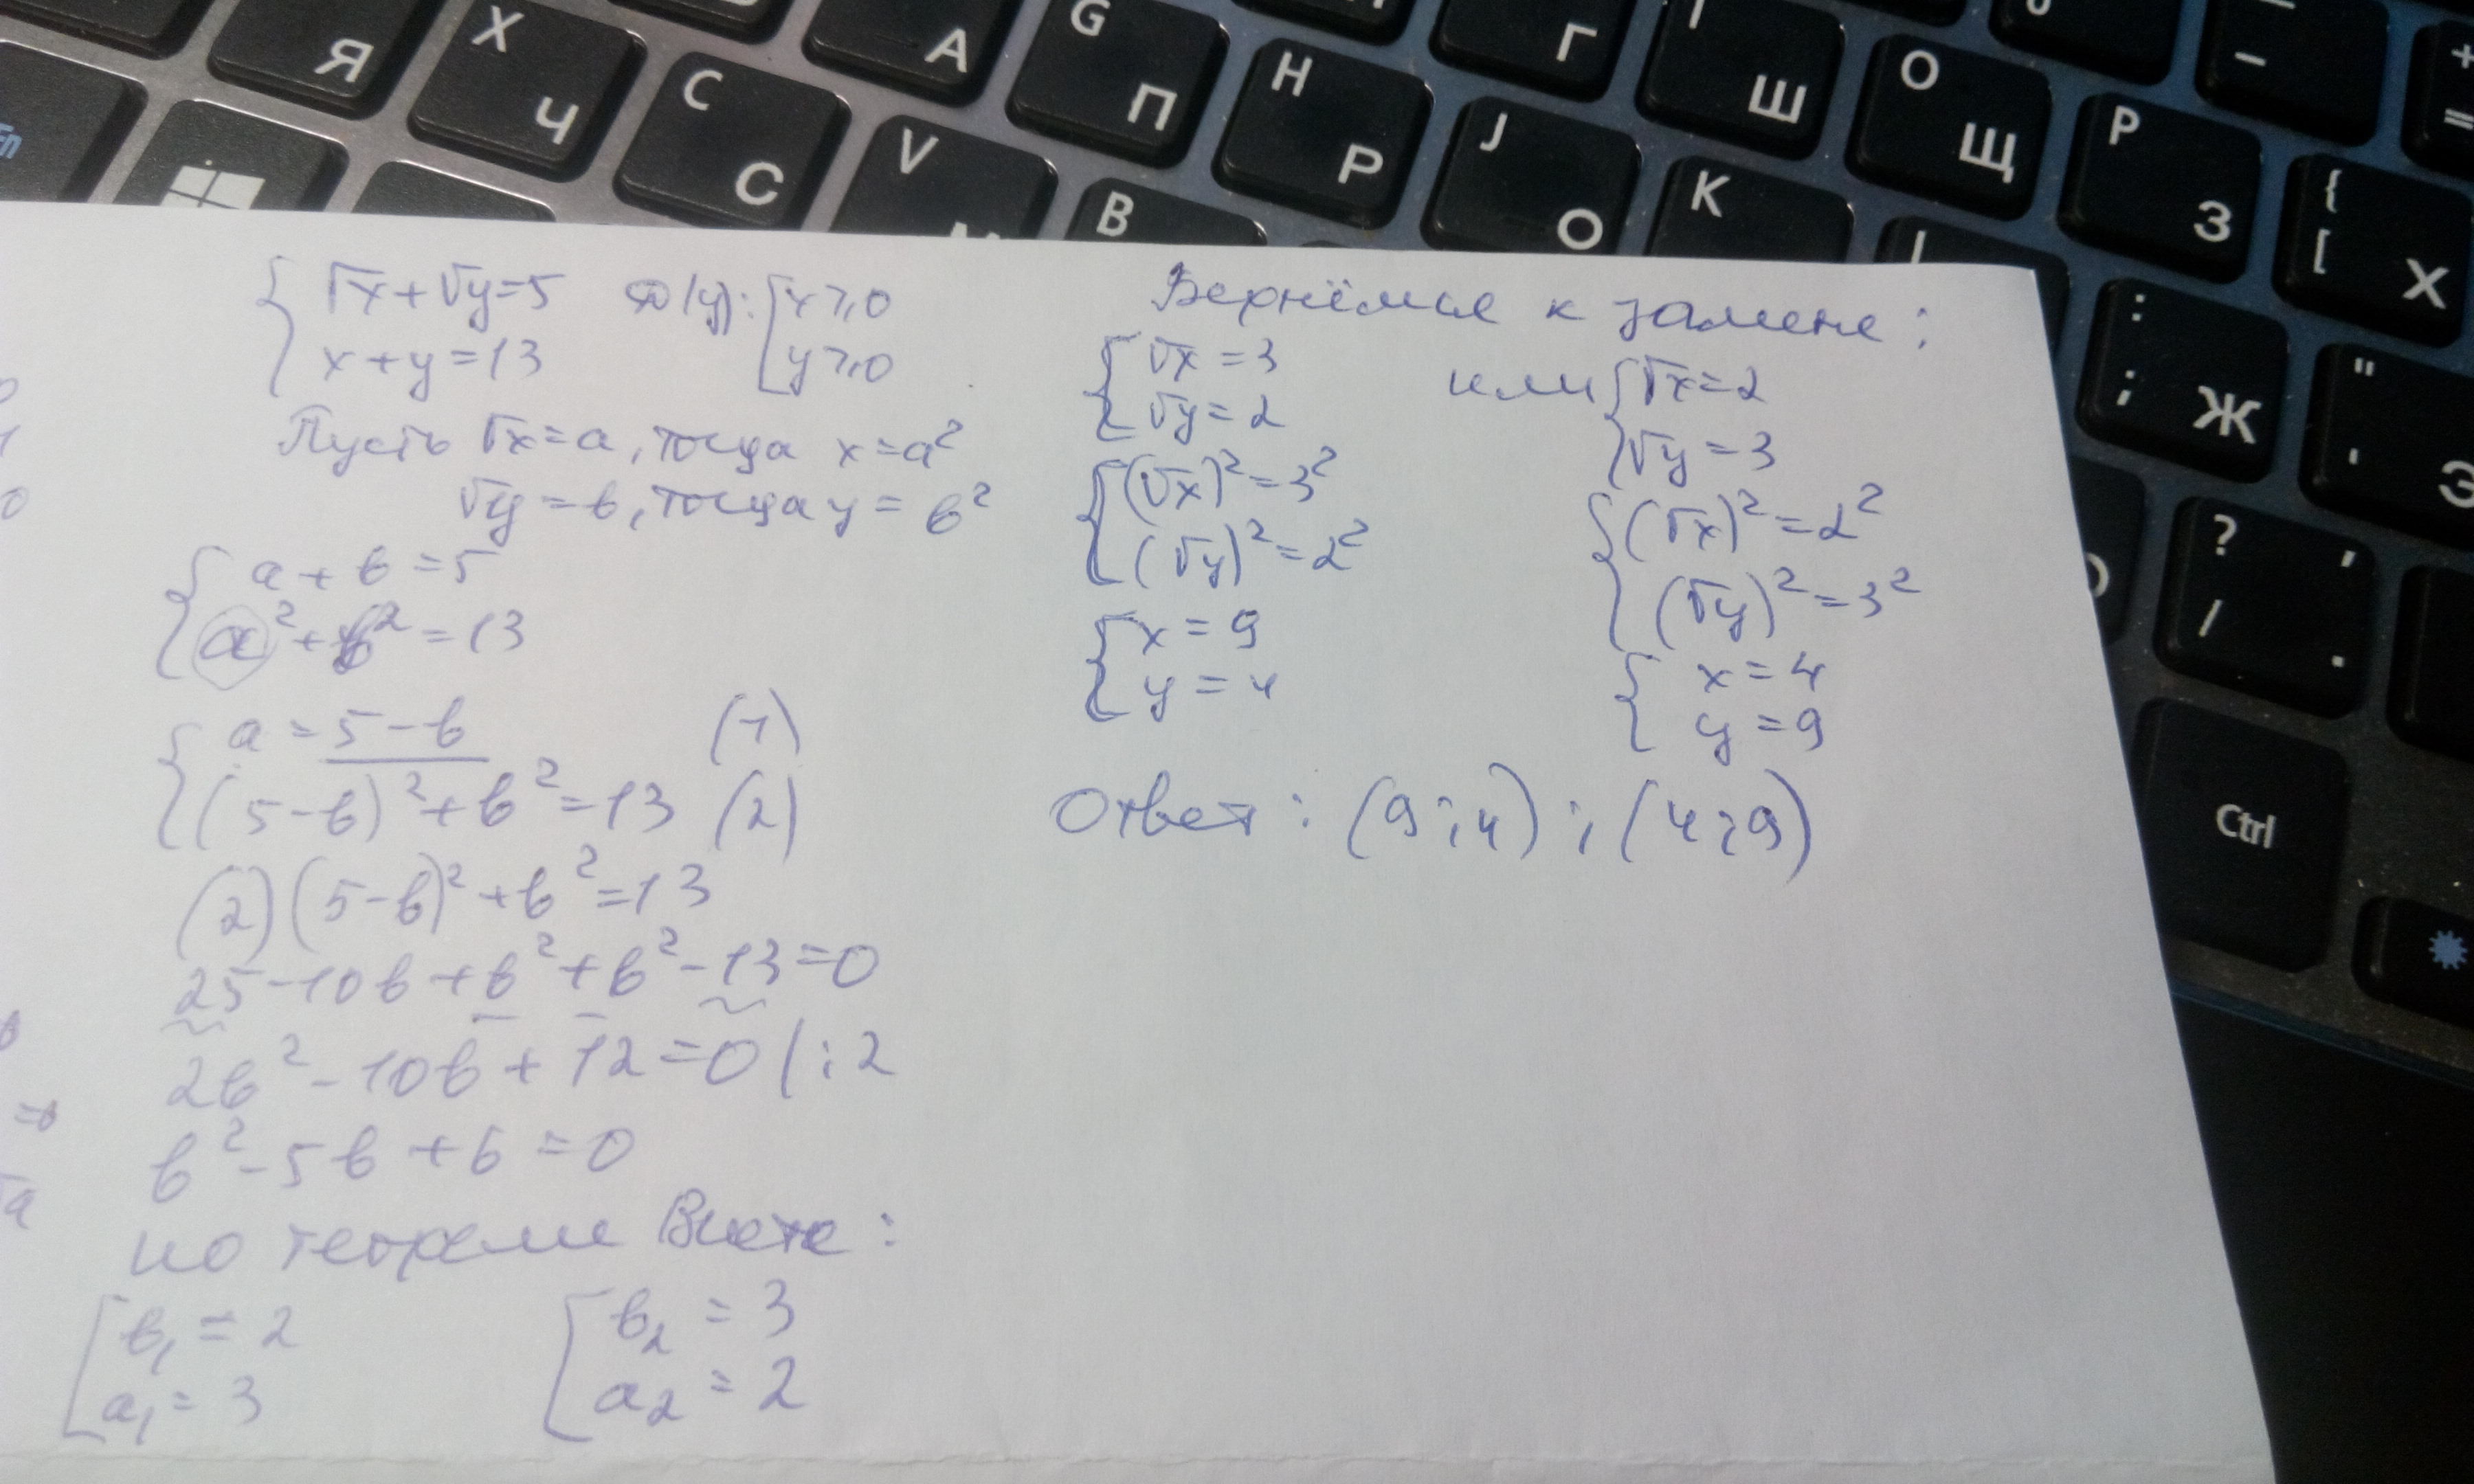 Я
X
Ч
C
С
А
V
G
П
B
H
Р
Г
J
О
Ш
K
O
Щ
P
З
{
[
Х
:
;
Ж
"
'
Э
?
,
/
.
+
=
-
Fn
Ctrl
{ √x+√y=5 D(y): [ x⩾0
x+y=13 y⩾0
Пусть √x=a, тогда x=a²
√y=b, тогда y=b²
{ a+b=5
a²+b²=13
{ a=5-b (1)
(5-b)²+b²=13 (2)
(2) (5-b)²+b²=13
25-10b+b²+b²-13=0
2b²-10b+12=0 |:2
b²-5b+6=0
по теореме Виета:
[ b₁=2 [ b₂=3
a₁=3 a₂=2
Вернёмся к замене:
{ √x=3 или { √x=2
√y=2 √y=3
{ (√x)²=3² { (√x)²=2²
(√y)²=2² (√y)²=3²
{ x=9 { x=4
y=4 y=9
Ответ: (9;4); (4;9)